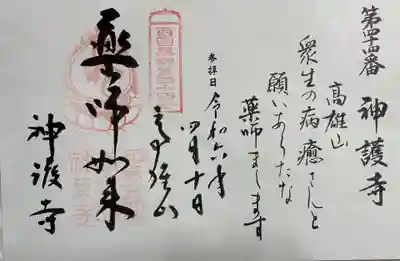 第四十四番 神護寺
高雄山
衆生の病癒さんと
願いあらたな
薬師まします
参拝日 令和六年
四月十日
高雄山
薬師如来
神護寺